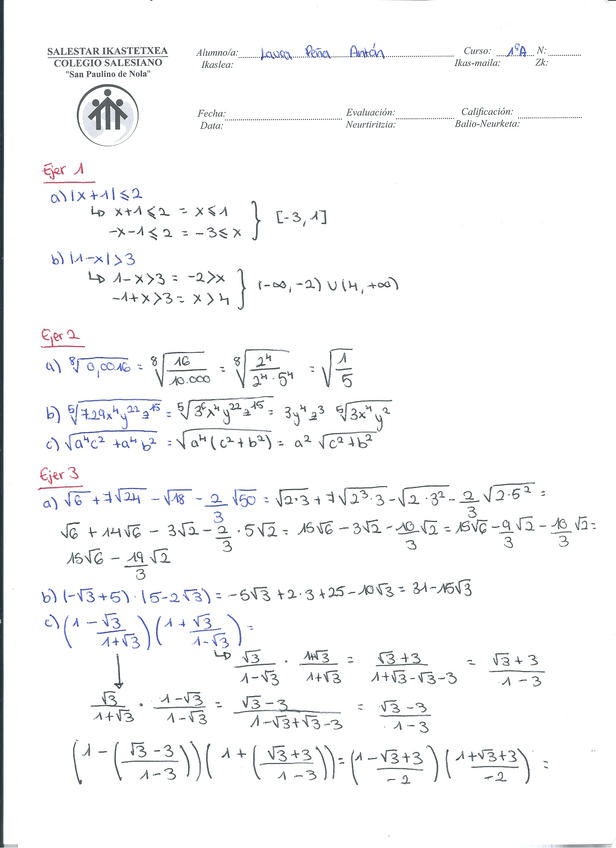 SALESTAR IKASTETXEA
COLEGIO SALESIANO
"San Paulino de Nola"
Alumno/a: Laura Peña Antón Curso: 1ºA N:
Ikaslea: Ikas-maila: Zk:
Fecha: Evaluación: Calificación:
Data: Neurtiritzia: Balio-Neurketa:
Ejer 1
a) |x+1| ≤ 2
↳ x+1 ≤ 2 = x ≤ 1
-x-1 ≤ 2 = -3 ≤ x } [-3, 1]
b) |1-x| > 3
↳ 1-x > 3 = -2 > x
-1+x > 3 = x > 4 } (-∞, -2) ∪ (4, +∞)
Ejer 2
a) ⁸√0,0016 = ⁸√(16/10.000) = ⁸√(2⁴/(2⁴·5⁴)) = √(1/5)
b) ⁵√(729x⁴y²²z¹⁵) = ⁵√(3⁶x⁴y²²z¹⁵) = 3y⁴z³ ⁵√(3x⁴y²)
c) √(a⁴c² + a⁴b²) = √(a⁴(c²+b²)) = a² √(c²+b²)
Ejer 3
a) √6 + 7√24 - √18 - 2/3 √50 = √(2·3) + 7√(2³·3) - √(2·3²) - 2/3 √(2·5²) =
√6 + 14√6 - 3√2 - 2/3 · 5√2 = 15√6 - 3√2 - 10/3 √2 = 15√6 - 9/3 √2 - 10/3 √2 =
15√6 - 19/3 √2
b) (-√3+5) · (5-2√3) = -5√3 + 2·3 + 25 - 10√3 = 31 - 15√3
c) (1 - √3/(1+√3)) (1 + √3/(1-√3)) =
↳ √3/(1-√3) · (1+√3)/(1+√3) = (√3+3)/(1+√3-√3-3) = (√3+3)/(1-3)
↓ √3/(1+√3) · (1-√3)/(1-√3) = (√3-3)/(1-√3+√3-3) = (√3-3)/(1-3)
(1 - ((√3-3)/(1-3))) (1 + ((√3+3)/(1-3))) = (1 - (√3+3)/-2) (1 + (√3+3)/-2) =